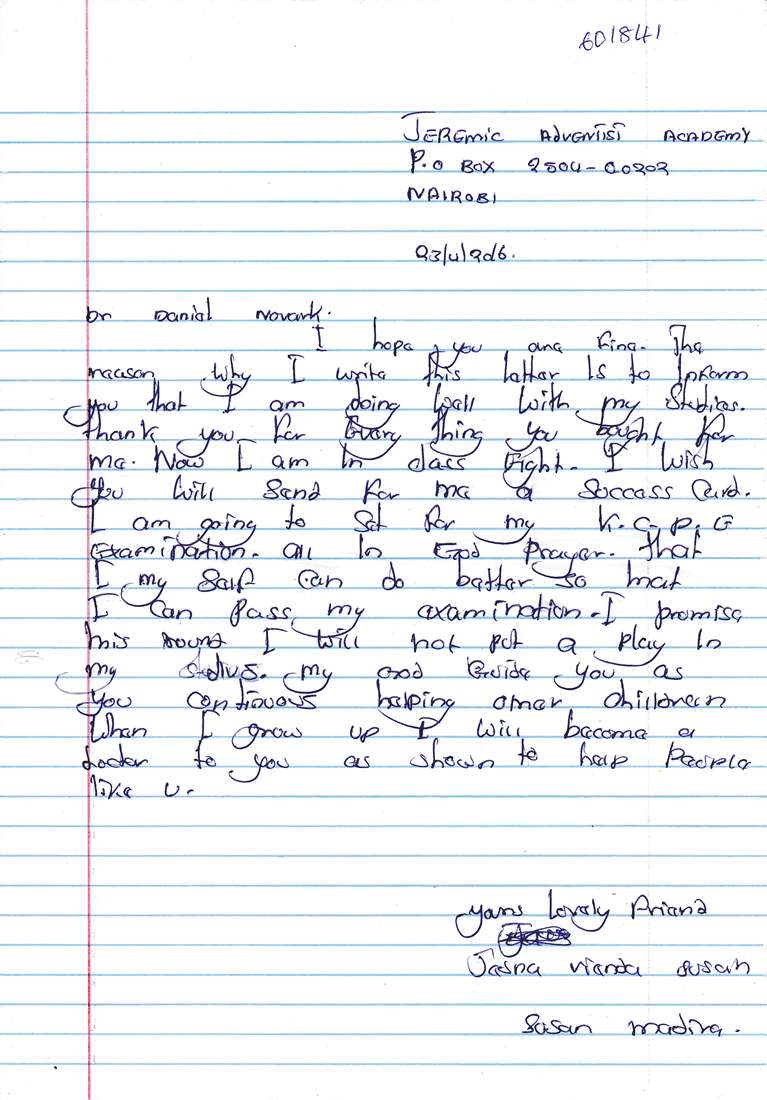 601841
JEREMIC ADVENTIST ACADEMY
P.O BOX 2504-00202
NAIROBI
Dr Danial Novark.
I hope you are fine. The
reason why I write this latter Is to Inform
you that I am doing wall With my Studies.
thank you For Every thing you bought For
me. Now I am In class Eight. I Wish
You Will Sand For me a Success Card.
I am going to Sat For my K.C.P.E
examination. all In God Prayer. that
I my Self can do batter so that
I Can Pass my examination. I promise
this round I Will not put a play In
my my God Guide you as
you continuous helping other children
When I grow up I Will become a
docter to you as shown to help People
like U.
yans lovely Friend
Susan
Susan madira.